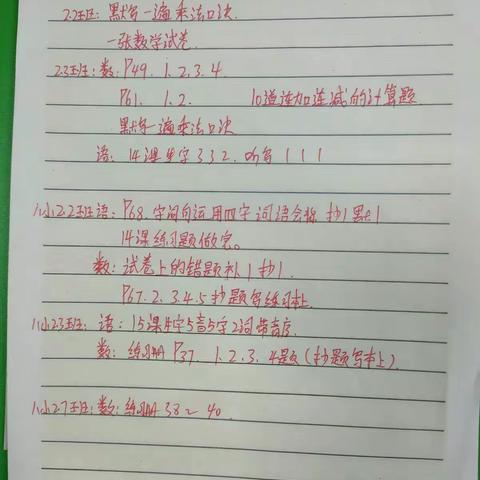 2.2班: 默写一遍乘法口诀
一张数学试卷
2.3班: 数: P49. 1.2.3.4.
P61. 1.2. 10道连加连减的计算题
默写一遍乘法口诀
语: 14课生字332. 听写111
八小2.2班语: P68.字词句运用四字词语会称抄1默1
14课练习题做完。
数: 试卷上的错题补1抄1.
P67.2.3.4.5抄题写练习本上.
八小2.3班: 语: 15课生字5音5字2词带音序.
数: 练习册P37. 1.2.3.4题(抄题写本上)
八小2.7班: 数: 练习册38~40.